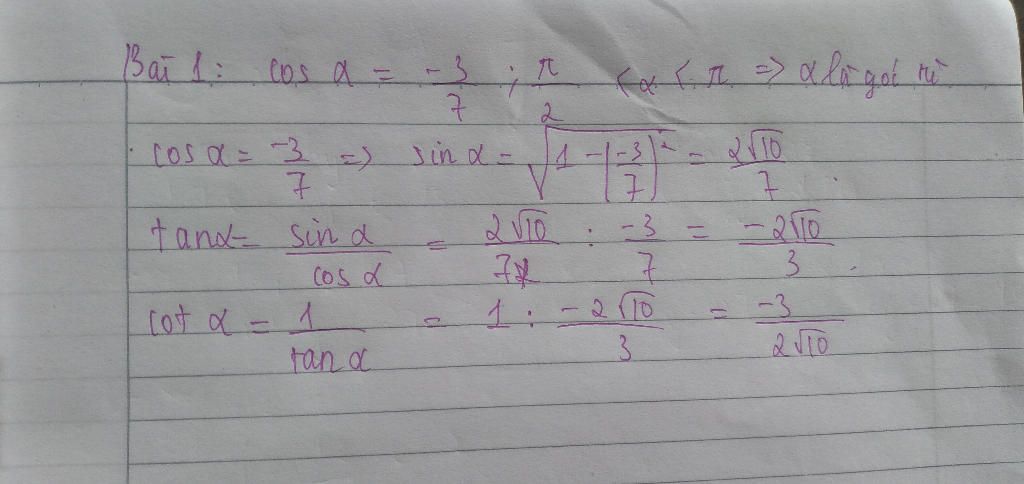 Bài 1: cos α = -3/7 ; π/2 < α < π => α là góc tù
cos α = -3/7 => sin α = √(1 - (-3/7)²) = 2√10/7.
tanα = sin α/cos α = 2√10/7 : -3/7 = -2√10/3.
cot α = 1/tan α = 1 : -2√10/3 = -3/2√10